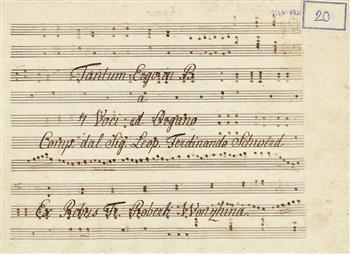 20
Tantum Ergo in B
a
4 Voci ed Organo
Comp. dal Sig Leop. Ferdinando Schwerd
Ex Rebus Fr. Roberti